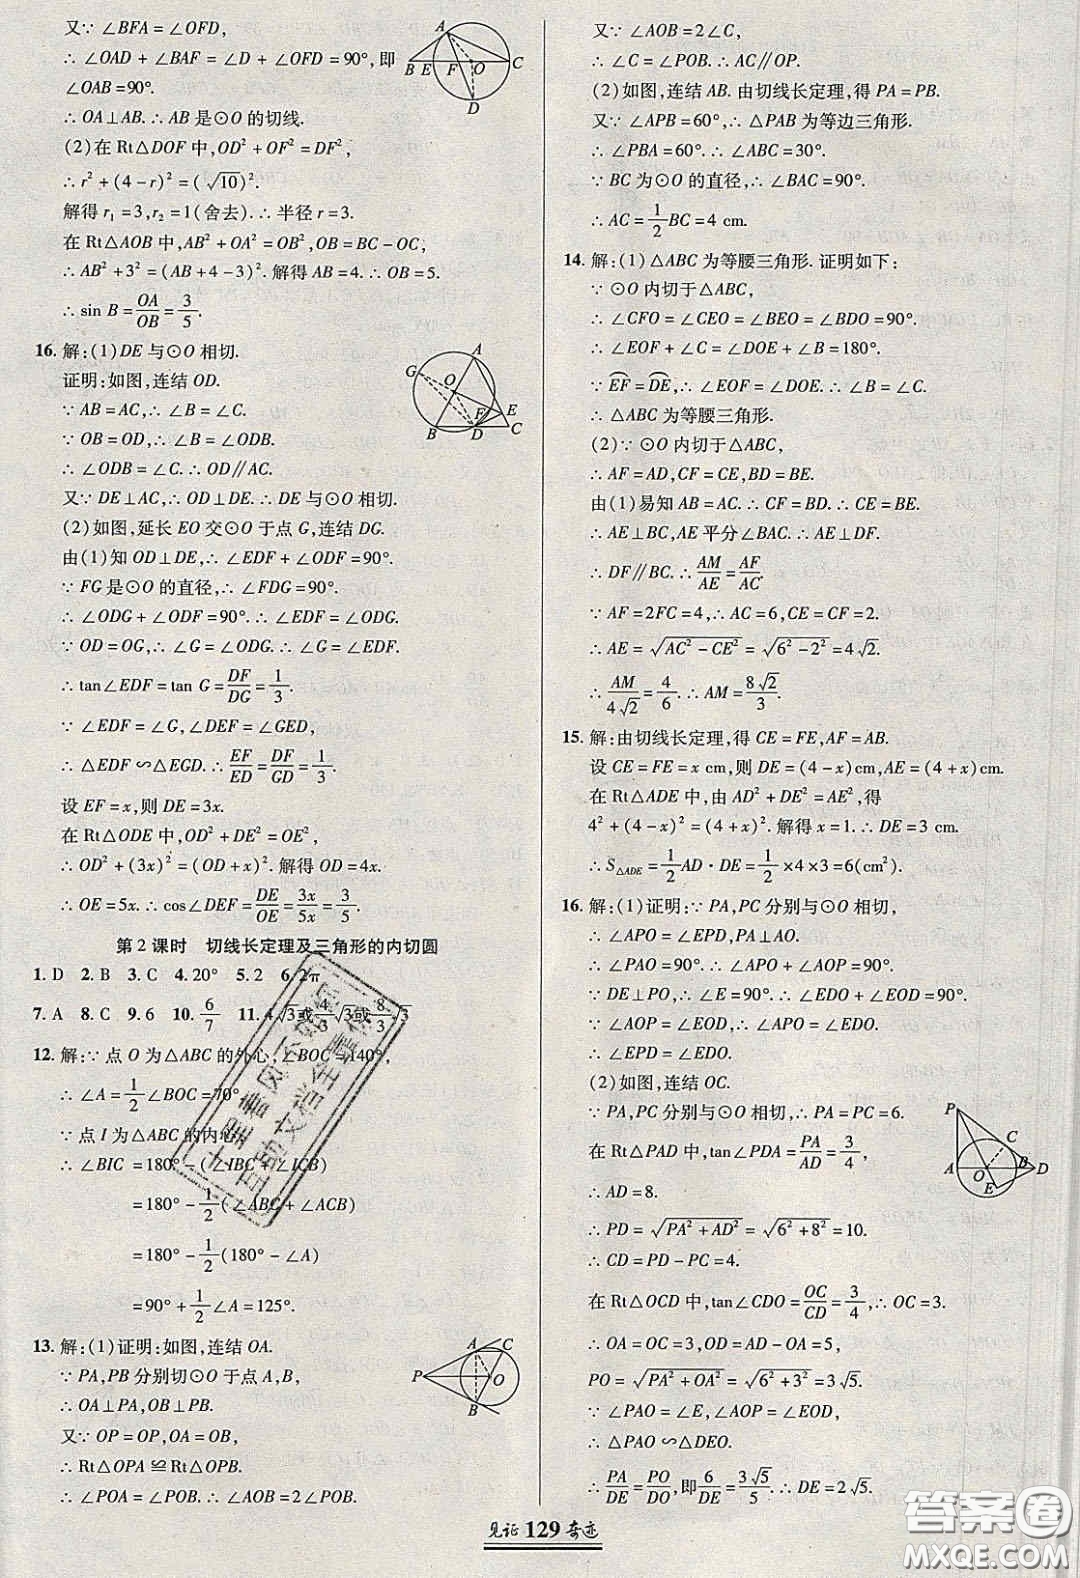 又∵ ∠BFA = ∠OFD,
∴ ∠OAD + ∠BAF = ∠D + ∠OFD = 90°, 即
∠OAB = 90°.
∴ OA⊥AB. ∴ AB 是⊙O 的切线.
(2)在 Rt△DOF 中, OD² + OF² = DF²,
∴ r² + (4 - r)² = (√10)².
解得 r₁ = 3, r₂ = 1(舍去). ∴ 半径 r = 3.
在 Rt△AOB 中, AB² + OA² = OB², OB = BC - OC,
∴ AB² + 3² = (AB + 4 - 3)². 解得 AB = 4. ∴ OB = 5.
∴ sin B = OA/OB = 3/5.
A
B E F O C
D
16. 解:(1) DE 与⊙O 相切.
证明:如图,连结 OD.
∵ AB = AC, ∴ ∠B = ∠C.
∵ OB = OD, ∴ ∠B = ∠ODB.
∴ ∠ODB = ∠C. ∴ OD∥AC.
又∵ DE⊥AC, ∴ OD⊥DE. ∴ DE 与⊙O 相切.
(2)如图,延长 EO 交⊙O 于点 G,连结 DG.
由(1)知 OD⊥DE, ∴ ∠EDF + ∠ODF = 90°.
∵ FG 是⊙O 的直径, ∴ ∠FDG = 90°.
∴ ∠ODG + ∠ODF = 90°. ∴ ∠ODG = ∠EDF.
∵ OD = OG, ∴ ∠G = ∠ODG. ∴ ∠G = ∠EDF.
∴ tan∠EDF = tan G = DF/DG = 1/3.
∵ ∠EDF = ∠G, ∠DEF = ∠GED,
∴ △EDF ∽ △EGD. ∴ EF/ED = DF/GD = 1/3.
设 EF = x, 则 DE = 3x.
在 Rt△ODE 中, OD² + DE² = OE²,
∴ OD² + (3x)² = (OD + x)². 解得 OD = 4x.
∴ OE = 5x. ∴ cos∠DEF = DE/OE = 3x/5x = 3/5.
A
G
O
F E
B D C
第 2 课时 切线长定理及三角形的内切圆
1. D 2. B 3. C 4. 20° 5. 2 6. 2π
7. A 8. C 9. 6 10. 6/7 11. 4√3或4/3√3或8/3√3
12. 解:∵ 点 O 为△ABC 的外心, ∠BOC = 140°,
∴ ∠A = 1/2∠BOC = 70°.
∵ 点 I 为△ABC 的内心,
∴ ∠BIC = 180° - (∠IBC + ∠ICB)
= 180° - 1/2(∠ABC + ∠ACB)
= 180° - 1/2(180° - ∠A)
= 90° + 1/2∠A = 125°.
13. 解:(1)证明:如图,连结 OA.
∵ PA, PB 分别切⊙O 于点 A, B,
∴ OA⊥PA, OB⊥PB.
又∵ OP = OP, OA = OB,
∴ Rt△OPA ≌ Rt△OPB.
∴ ∠POA = ∠POB. ∴ ∠AOB = 2∠POB.
A C
P O
B
又∵ ∠AOB = 2∠C,
∴ ∠C = ∠POB. ∴ AC∥OP.
(2)如图,连结 AB. 由切线长定理,得 PA = PB.
又∵ ∠APB = 60°, ∴ △PAB 为等边三角形.
∴ ∠PBA = 60°. ∴ ∠ABC = 30°.
∵ BC 为⊙O 的直径, ∴ ∠BAC = 90°.
∴ AC = 1/2 BC = 4 cm.
14. 解:(1) △ABC 为等腰三角形. 证明如下:
∵ ⊙O 内切于△ABC,
∴ ∠CFO = ∠CEO = ∠BEO = ∠BDO = 90°.
∴ ∠EOF + ∠C = ∠DOE + ∠B = 180°.
∵ EF⌒ = DE⌒, ∴ ∠EOF = ∠DOE. ∴ ∠B = ∠C.
∴ △ABC 为等腰三角形.
(2)∵ ⊙O 内切于△ABC,
∴ AF = AD, CF = CE, BD = BE.
由(1)易知 AB = AC. ∴ CF = BD. ∴ CE = BE.
∴ AE⊥BC, AE 平分∠BAC. ∴ AE⊥DF.
∴ DF∥BC. ∴ AM/AE = AF/AC.
∵ AF = 2FC = 4, ∴ AC = 6, CE = CF = 2.
∴ AE = √(AC² - CE²) = √(6² - 2²) = 4√2.
∴ AM/4√2 = 4/6. ∴ AM = 8√2/3.
15. 解:由切线长定理,得 CE = FE, AF = AB.
设 CE = FE = x cm, 则 DE = (4 - x)cm, AE = (4 + x)cm.
在 Rt△ADE 中, 由 AD² + DE² = AE², 得
4² + (4 - x)² = (4 + x)². 解得 x = 1. ∴ DE = 3 cm.
∴ S△ADE = 1/2 AD·DE = 1/2 × 4 × 3 = 6(cm²).
16. 解:(1)证明:∵ PA, PC 分别与⊙O 相切,
∴ ∠APO = ∠EPD, PA⊥AO.
∴ ∠PAO = 90°. ∴ ∠APO + ∠AOP = 90°.
∵ DE⊥PO, ∴ ∠E = 90°. ∴ ∠EOD + ∠EDO = 90°.
∵ ∠AOP = ∠EOD, ∴ ∠APO = ∠EDO.
∴ ∠EPD = ∠EDO.
(2)如图,连结 OC.
∵ PA, PC 分别与⊙O 相切, ∴ PA = PC = 6.
在 Rt△PAD 中, tan∠PDA = PA/AD = 3/4,
∴ AD = 8.
∴ PD = √(PA² + AD²) = √(6² + 8²) = 10.
∴ CD = PD - PC = 4.
在 Rt△OCD 中, tan∠CDO = OC/CD = 3/4, ∴ OC = 3.
∴ OA = OC = 3, OD = AD - OA = 5.
PO = √(PA² + OA²) = √(6² + 3²) = 3√5.
∵ ∠PAO = ∠E, ∠AOP = ∠EOD,
∴ △PAO ∽ △DEO.
∴ PA/DE = PO/DO, 即 6/DE = 3√5/5. ∴ DE = 2√5.
P
C
A O B D
E
见证 129 奇迹
答案圈
MXQE.COM